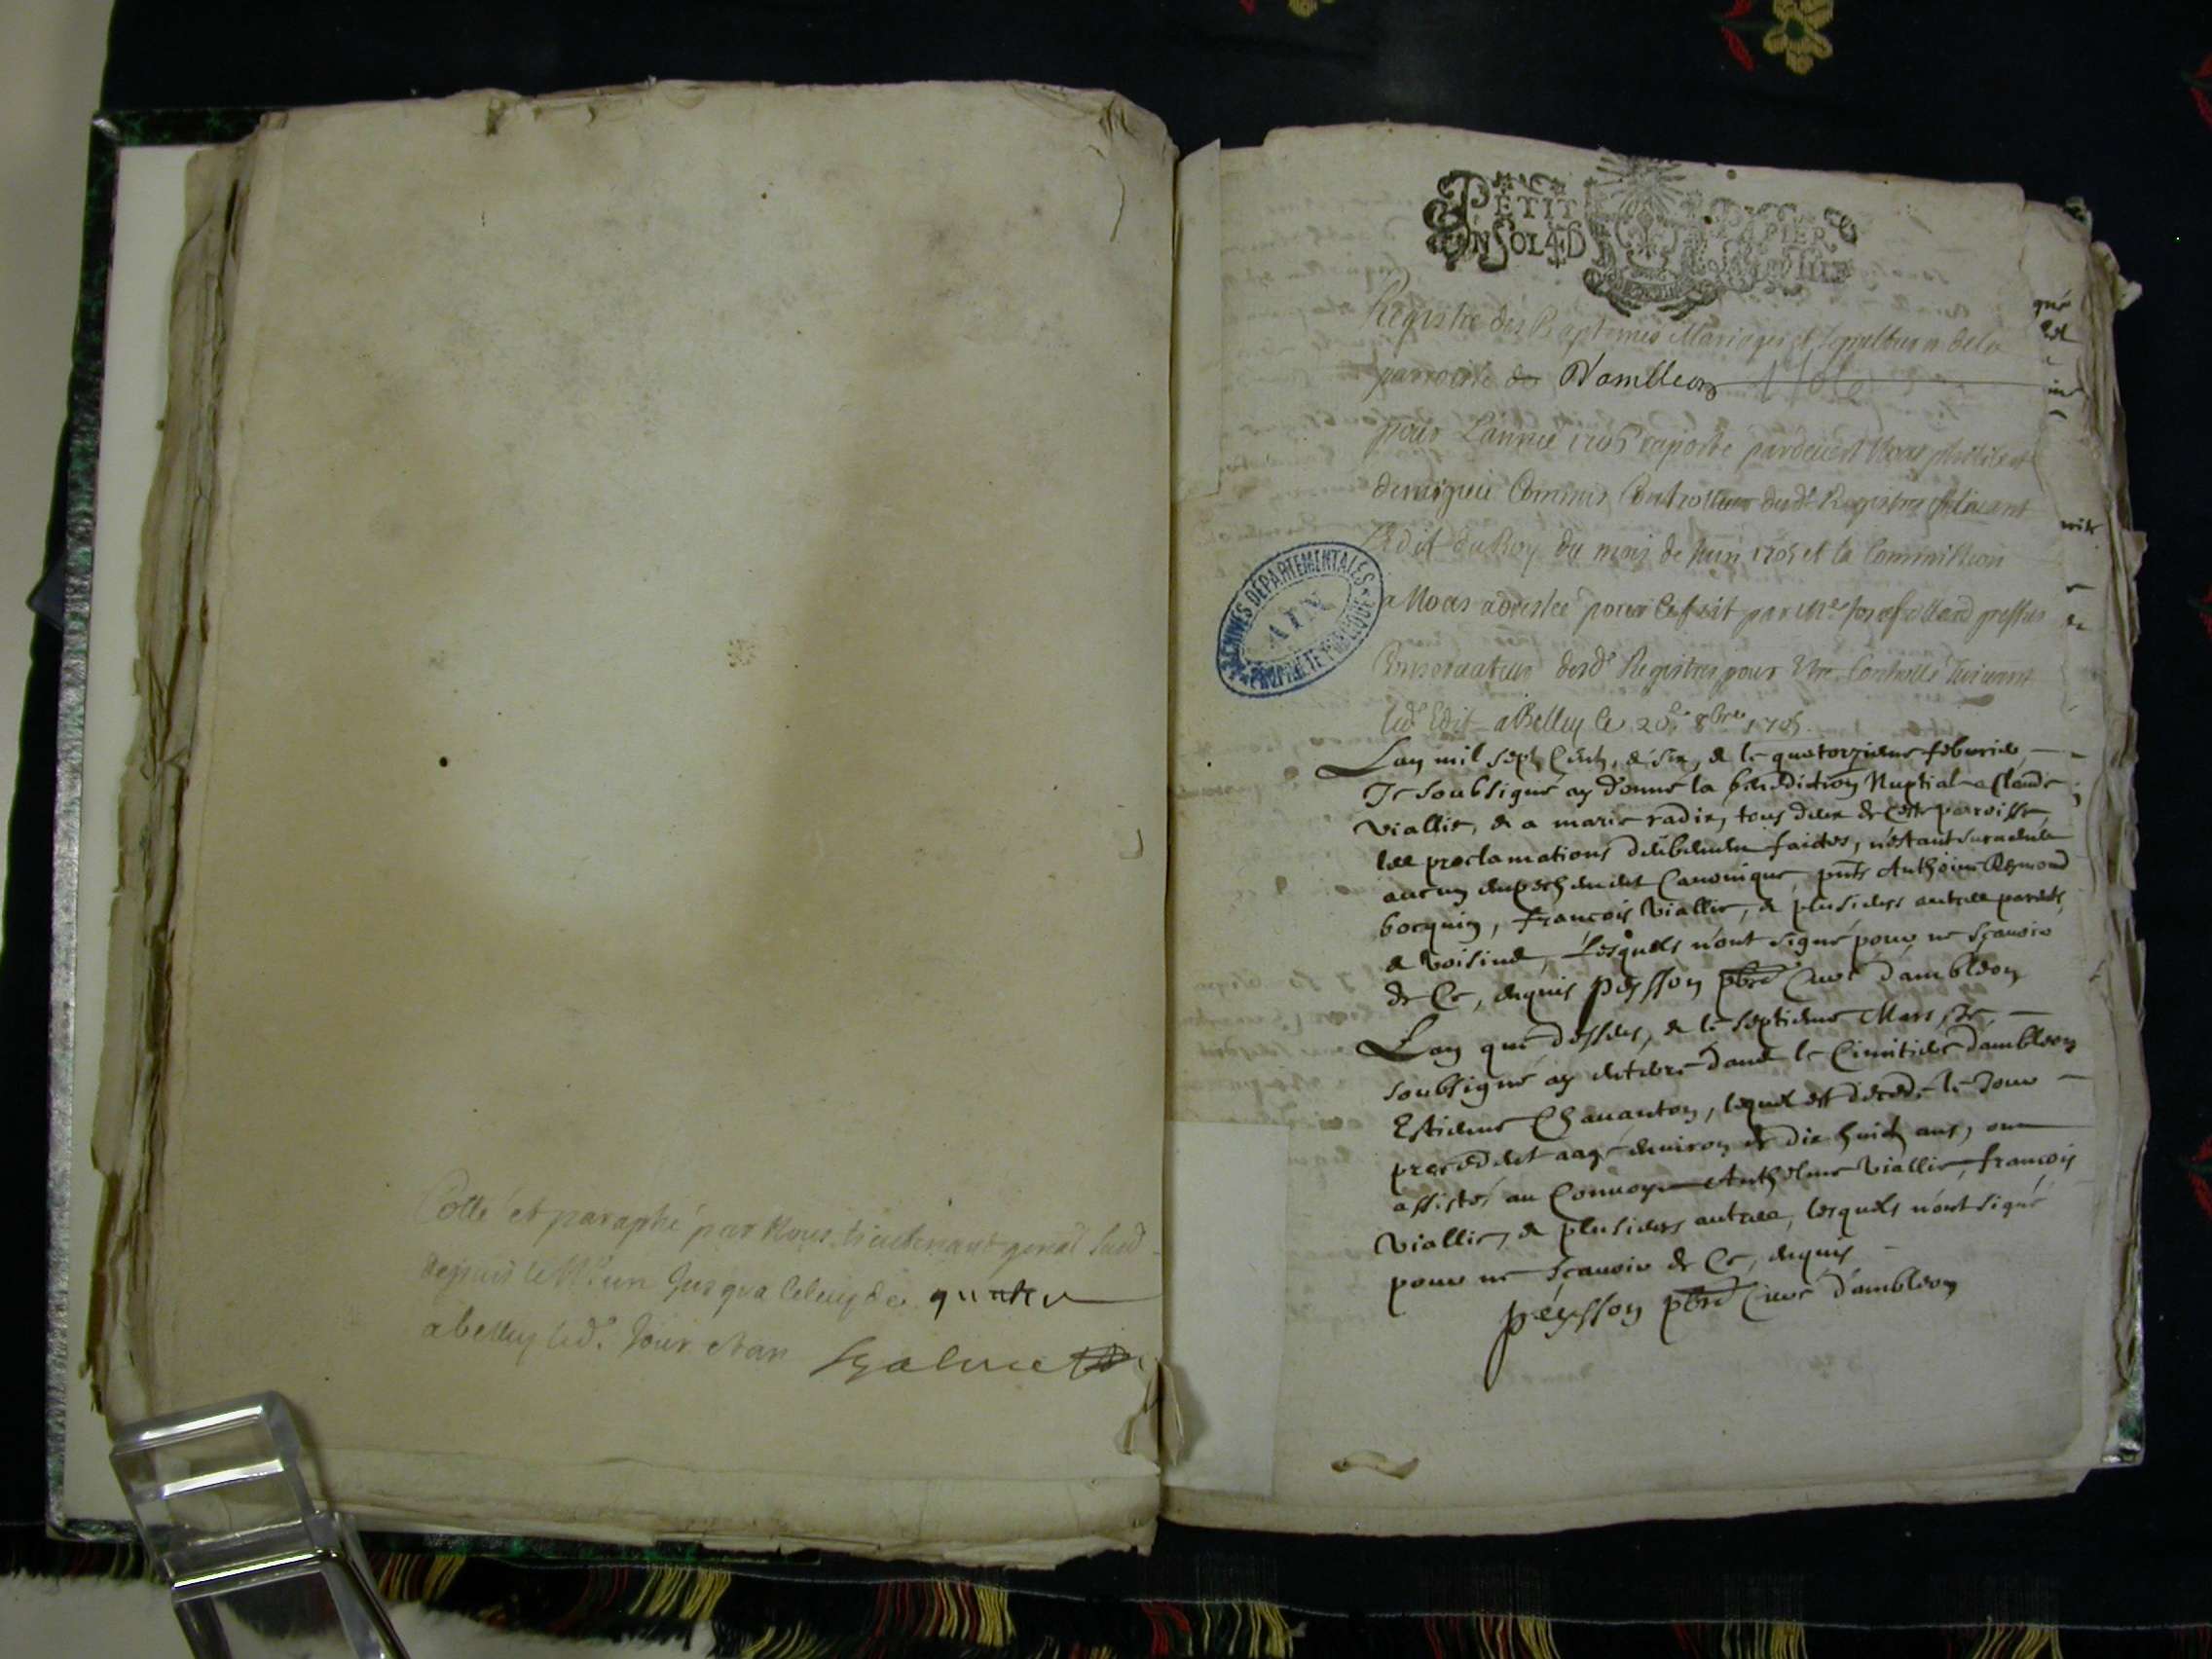 Cotté et paraphé par Nous lieutenant genal susd
depuis le N.º un Jusqua Celuy de quatre
a belley led.t Jour et an
PETIT PAPIER
UN SOL 4 D
Registre des Baptemes Mariages et sepultures de la
parroisse de Dambleon
pour Lannee 1706 raporté pardevant Nous
Commis Controlleur desd.t Registres suivant
Ledit du Roy du mois de Juin 1705 et la Commission
a Nous adressée pour Cesfait par Me greffier
Conservateur desd.t Registres pour Etre Controllé suivant
led.t Edit a Belley le 20.e 8bre 1705.
ARCHIVES DÉPARTEMENTALES
AIN
PROPRIÉTÉ PUBLIQUE
Lan mil sept Cents, & six, & le quatorzieme febvrier
Je soubsigné ay donné la benediction Nuptiale a Claude
viallie, & a marie radix, tous deux de Cette paroisse,
les proclamations faictes, n'estant survenu
aucun empechement Canonique, pnts Anthoine Reymond
bocquin, françois viallie, & plusieurs autres parents,
& voisins, Lesquels n'ont signé pour ne sçavoir
de Ce, enquis peysson pbre Curé dambleon
Lan que dessus, & le septieme Mars, Je
soubsigné ay enterré dans le Cimitiere dambleon
Estienne Chavanton, lequel est decedé le Jour
precedent aagé denviron de dix huict ans, ont
assisté au Convoy Anthelme viallie, françois
viallie, & plusieurs autres, lesquels n'ont signé
pour ne sçavoir de Ce, enquis
peysson pbre Curé d'ambleon